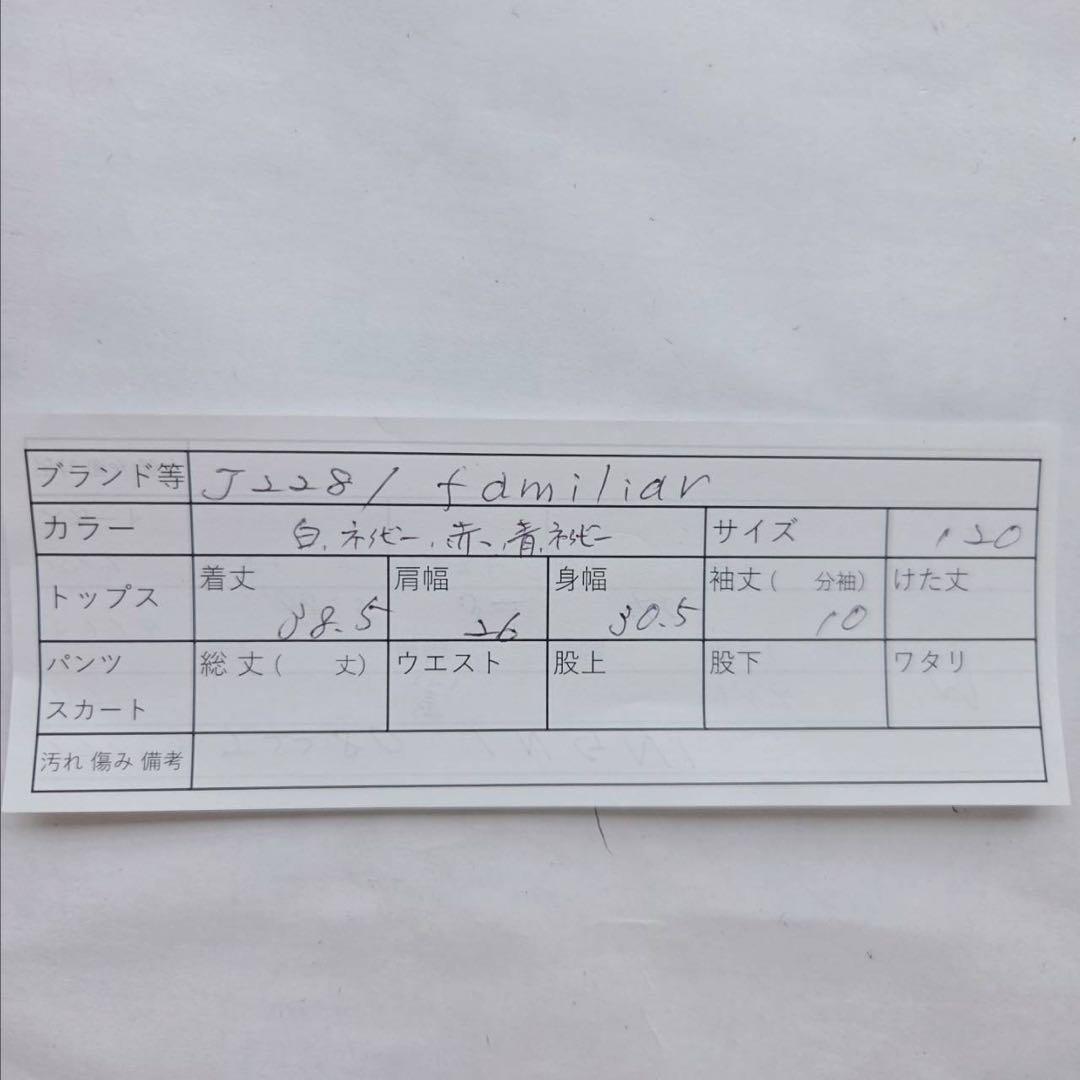 ブランド等 J2281 familiar
カラー 白、ネイビー、赤、青、ネイビー サイズ 120
トップス 着丈 38.5 肩幅 26 身幅 30.5 袖丈( 分袖) 10 けた丈
パンツ スカート 総丈( 丈) ウエスト 股上 股下 ワタリ
汚れ 傷み 備考